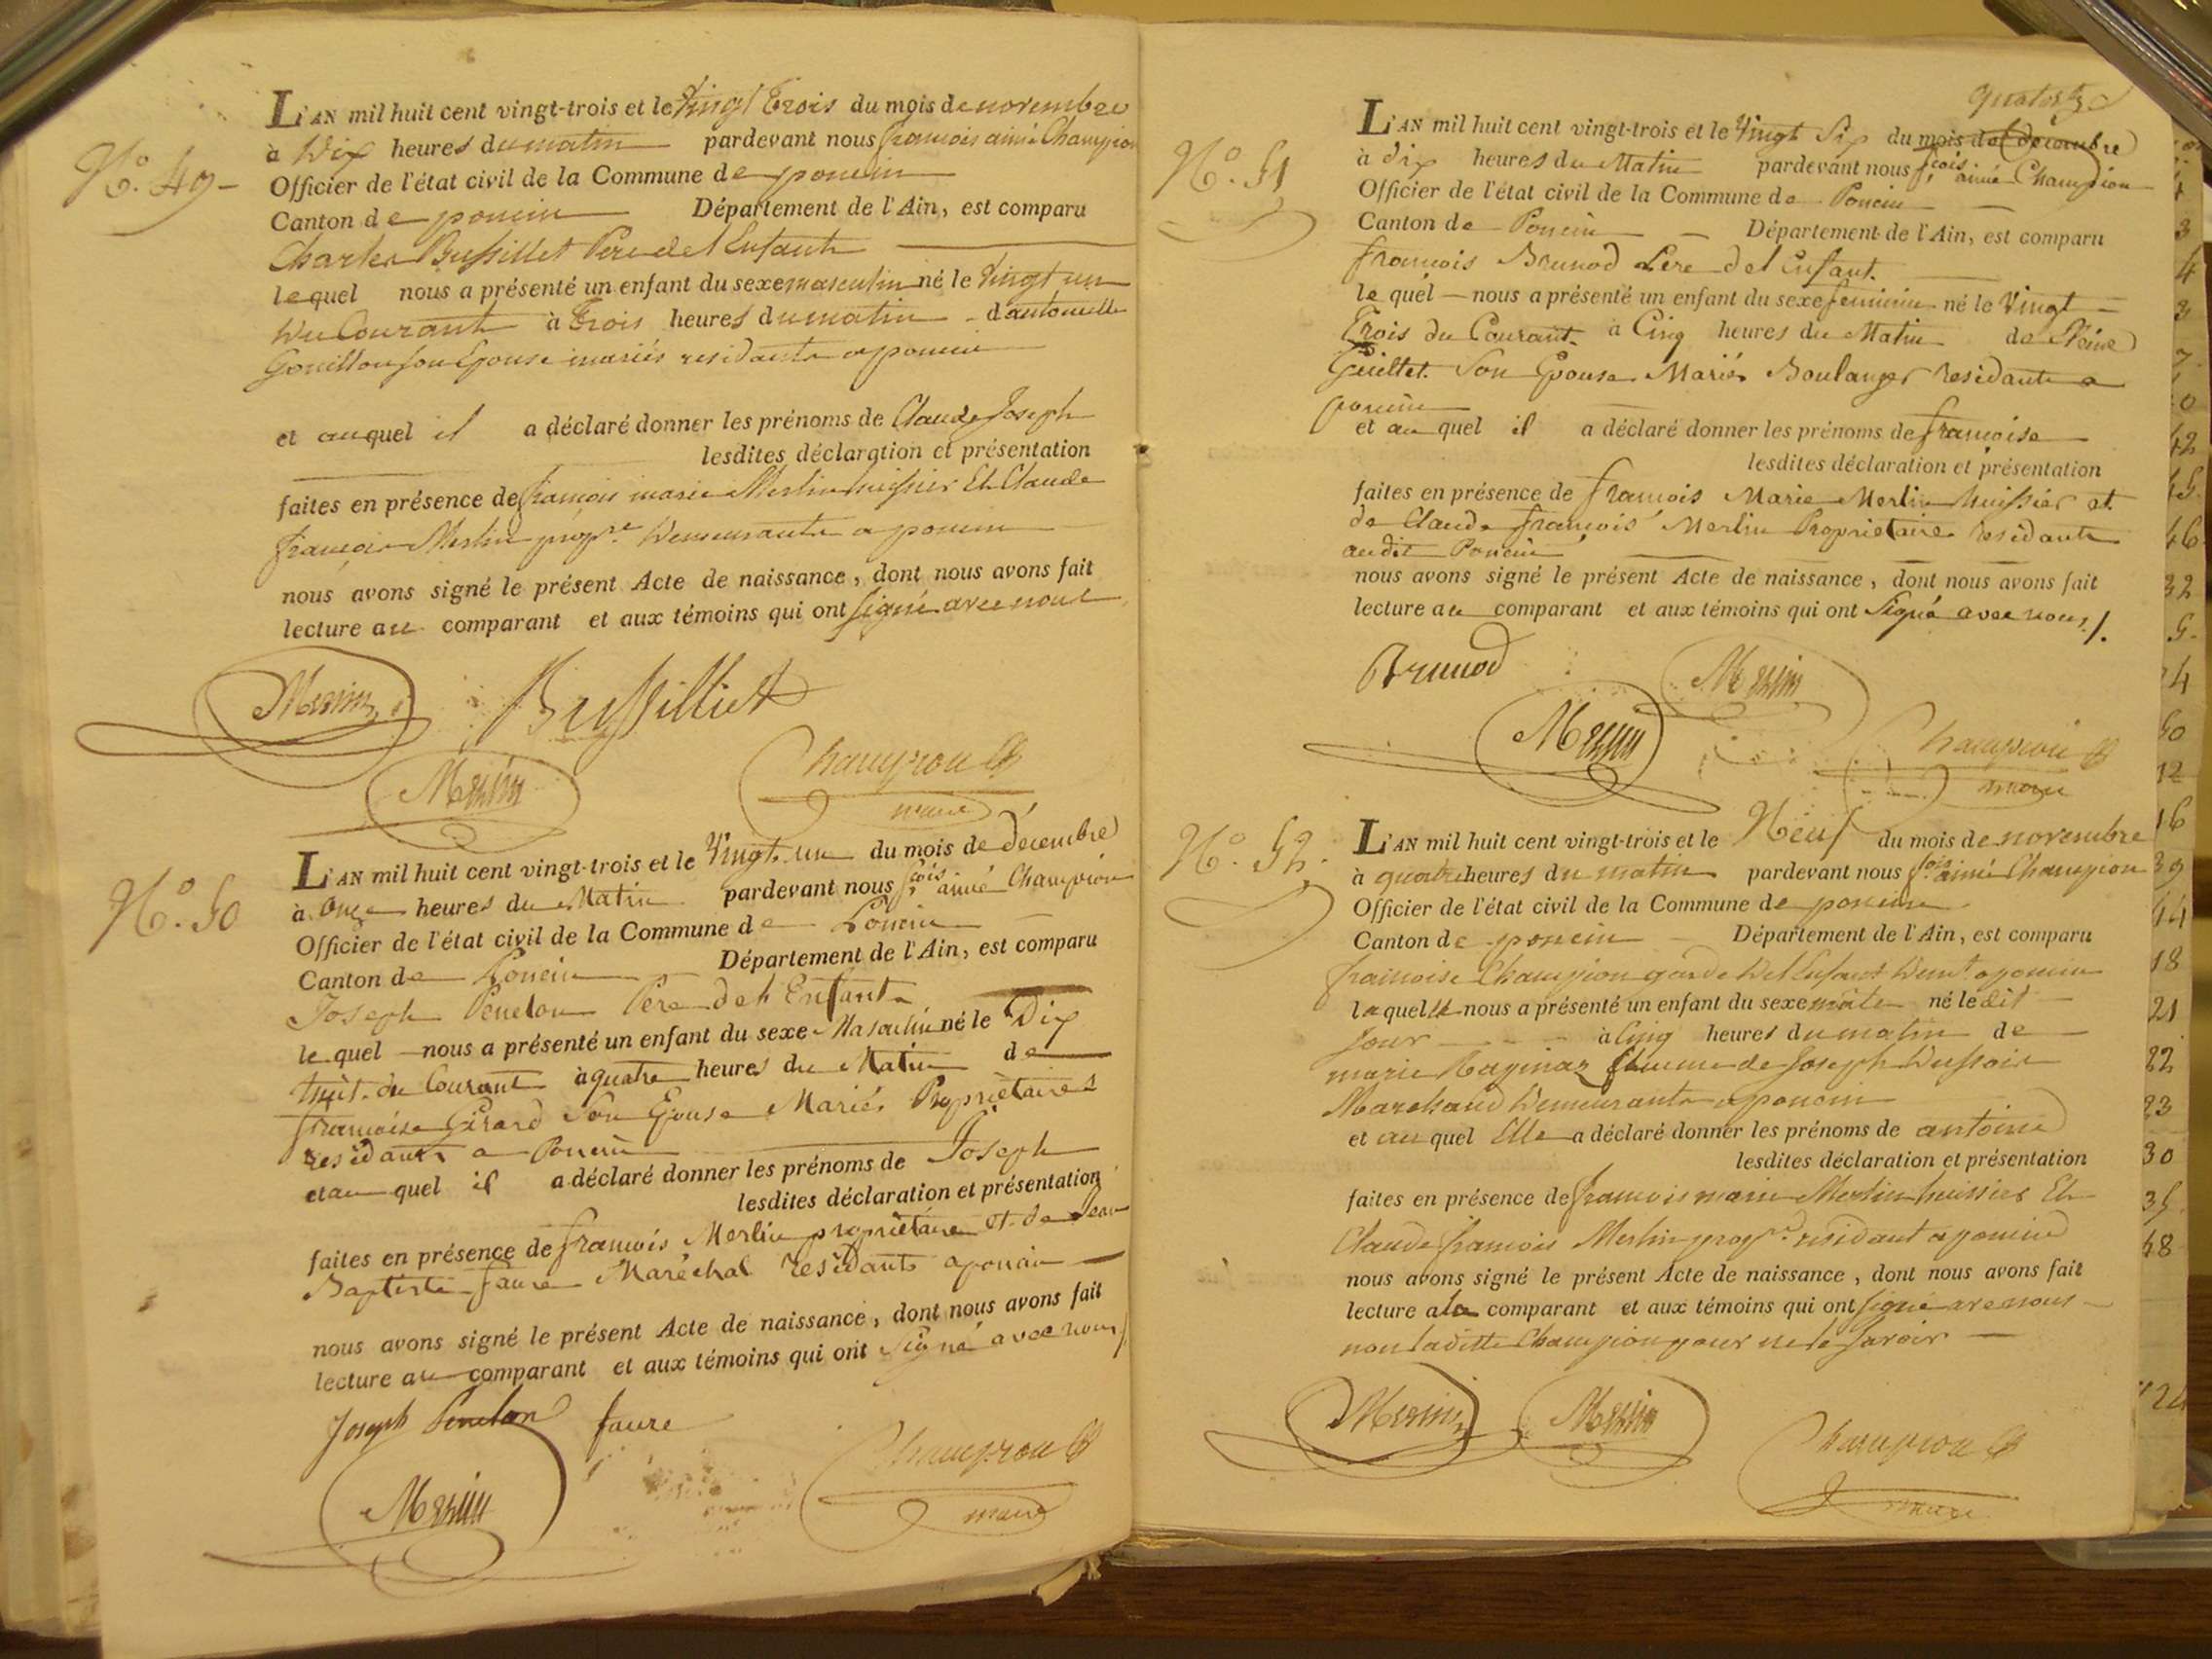 L'AN mil huit cent vingt-trois et le Vingt Trois du mois de novembre
à Dix heures du matin pardevant nous francois aimé Champion
N.º 49
Officier de l'état civil de la Commune de poncin
Canton de poncin Département de l'Ain, est comparu
Charles Bussillet Pere del Enfant
lequel nous a présenté un enfant du sexe masculin né le Vingt un
Du Courant à Trois heures du matin d'antoinette
Gouillou son Epouse mariés residants a poncin
et auquel il a déclaré donner les prénoms de Claude Joseph
lesdites déclaration et présentation
faites en présence de francois marie Merlin huissier Et Claude
francois Merlin prop.re Demeurants a poncin
nous avons signé le présent Acte de naissance, dont nous avons fait
lecture au comparant et aux témoins qui ont signé avec nous
Merlin Bussilliet
Merlin Champion
maire
N.º 50
L'AN mil huit cent vingt-trois et le Vingt un du mois de décembre
à Onze heures du Matin pardevant nous f.çois aimé Champion
Officier de l'état civil de la Commune de Poncin
Canton de Poncin Département de l'Ain, est comparu
Joseph Penelon Pere del Enfant
lequel nous a présenté un enfant du sexe Masculin né le Dix
huit du Courant à quatre heures du Matin de
francoise Girard Son Epouse Mariés Propriètaires
residants a Poncin
et au quel il a déclaré donner les prénoms de Joseph
lesdites déclaration et présentation
faites en présence de francois Merlin propriètaire et de Jean
Baptiste faure Maréchal residants a poncin
nous avons signé le présent Acte de naissance, dont nous avons fait
lecture au comparant et aux témoins qui ont Signé avec nous
Joseph Penelon faure
Merlin Champion
maire
quatorze
N.º 51
L'AN mil huit cent vingt-trois et le Vingt Six du mois de décembre
à dix heures du Matin pardevant nous f.çois aimé Champion
Officier de l'état civil de la Commune de Poncin
Canton de Poncin Département de l'Ain, est comparu
francois Brunod Pere del Enfant.
le quel nous a présenté un enfant du sexe feminin né le Vingt
Trois du Courant à Cinq heures du Matin de
Son Epouse Mariés Boulanger residants a
poncin
et au quel il a déclaré donner les prénoms de francoise
lesdites déclaration et présentation
faites en présence de francois Marie Merlin huissier et
de Claude francois Merlin Proprietaire residants
audit Poncin
nous avons signé le présent Acte de naissance, dont nous avons fait
lecture au comparant et aux témoins qui ont Signé avec nous /.
Brunod Merlin
Merlin Champion
maire
N.º 52.
L'AN mil huit cent vingt-trois et le Neuf du mois de novembre
à quatre heures du matin pardevant nous f.çois aimé Champion
Officier de l'état civil de la Commune de poncin
Canton de poncin Département de l'Ain, est comparu
francoise Champion garde Del Enfant Dem.t a poncin
laquelle nous a présenté un enfant du sexe mâle né le dit
Jour à Cinq heures du matin de
marie femme de Joseph
Marchand Demeurants a poncin
et au quel Elle a déclaré donner les prénoms de antoine
lesdites déclaration et présentation
faites en présence de francois marie Merlin huissier Et
Claude francois Merlin prop.re residant a poncin
nous avons signé le présent Acte de naissance, dont nous avons fait
lecture a la comparant et aux témoins qui ont signé avec nous
non laditte Champion pour ne le savoir
Merlin Merlin
Champion
maire